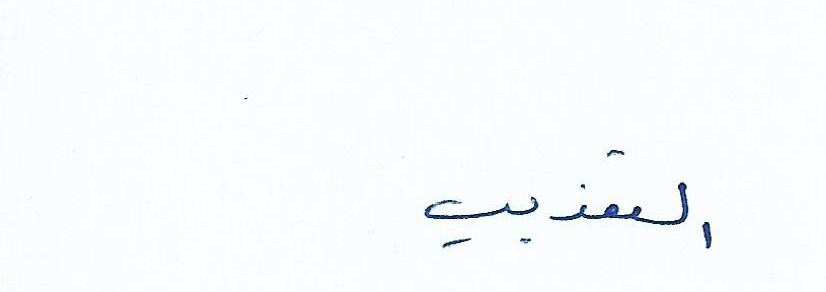 التعذيب